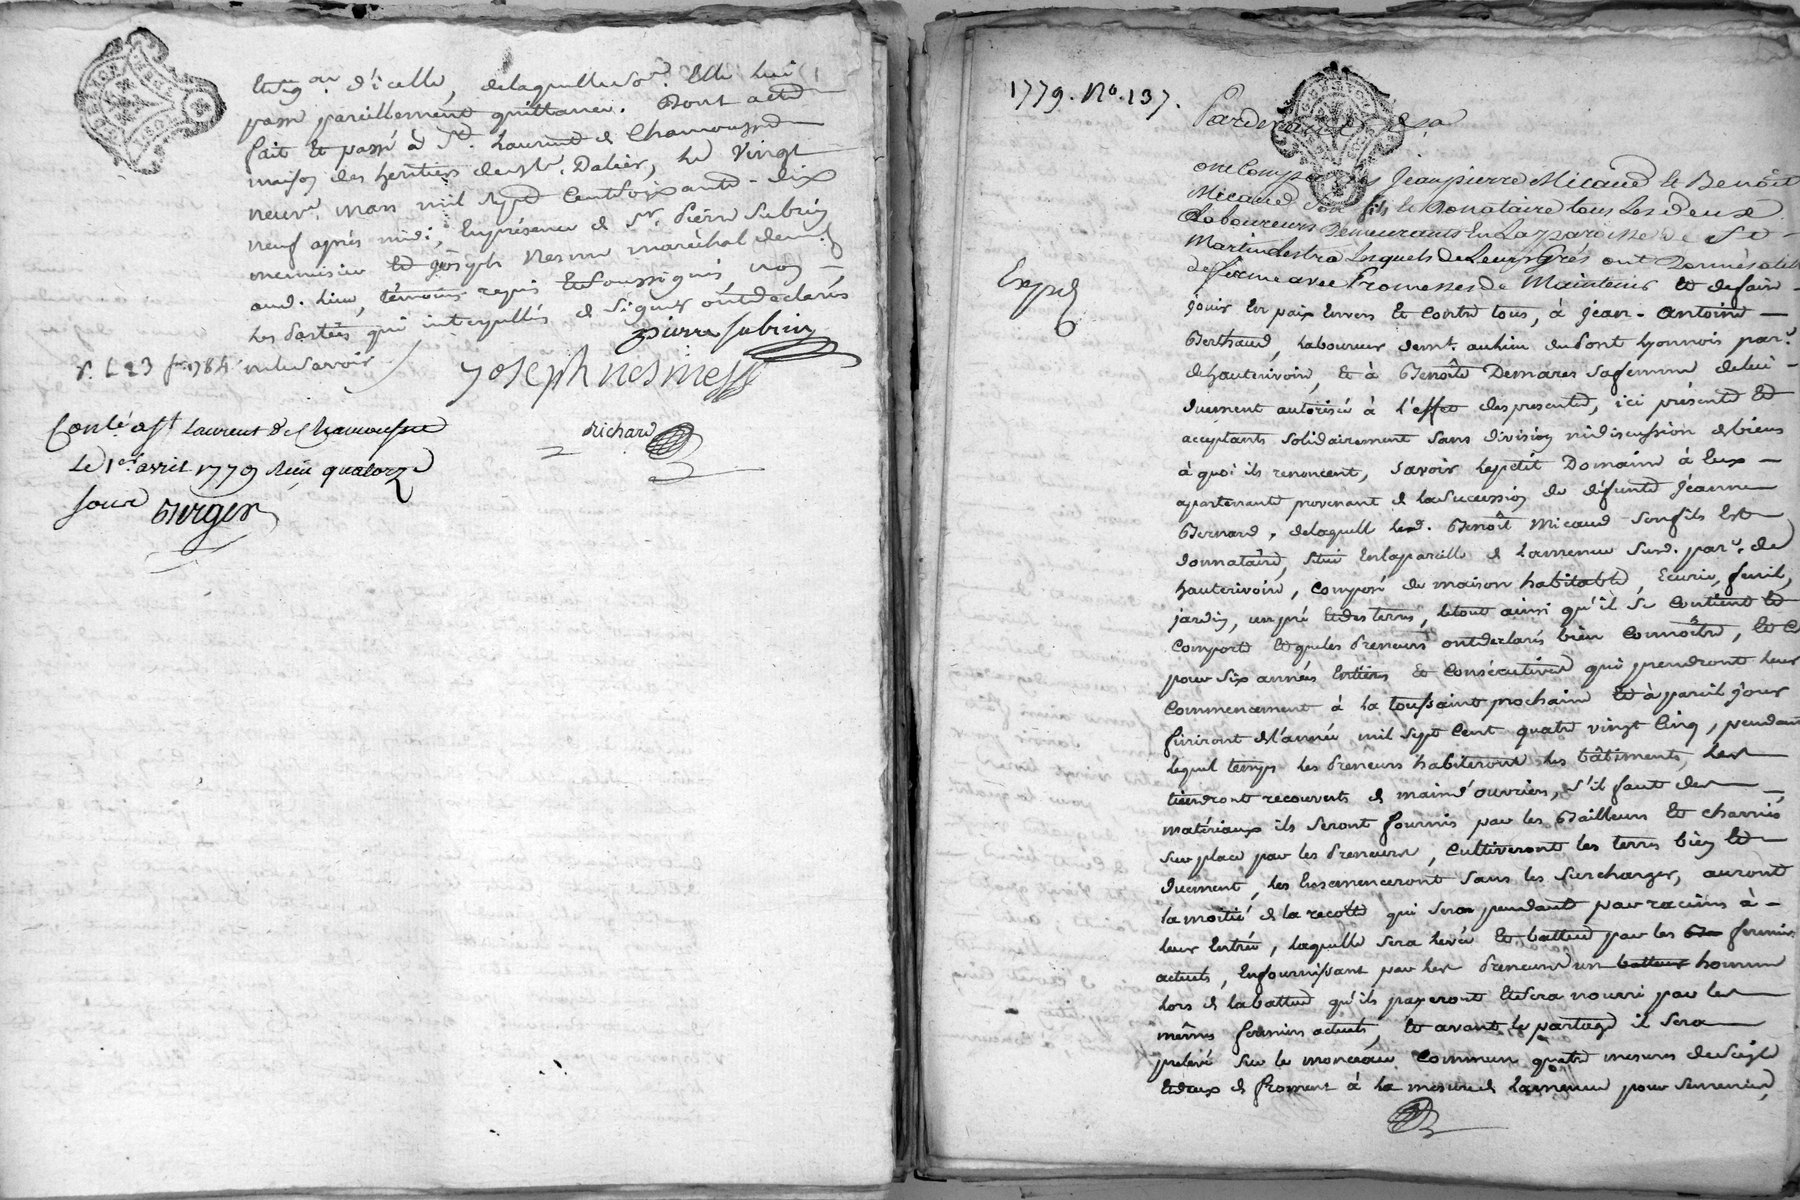 d'icelle, delaquelle so.e Elle lui
passe pareillement quittance. Dont acte
fait Et passé à St. Laurent de Chamousset
maison des heritiers de Mr. Dalier, le Vingt
neuv.e mars mil Sept Cent Soixante-dix
neuf après midi, En présence de Sr. Pierre Subrin
menuisier Et Joseph Nesme maréchal dem.t
aud. Lieu, témoins requis Et Soussignés, non
les Parties qui interpellés de Signer ont déclarés
ne le Savoir
pierre subrin
Joseph nesme
Richard
Conlé a St Laurent De Chamousset
Le 1er avril 1779 Reçu quatorze
sous Berger
1779. No. 137.
Pardevant
Exped
ont Comparu Jean pierre Micaud Et Benoît
Micaud Son fils Et Donataire tous Les deux
Laboureurs Demeurants En La parroisse de St
Martin Lestra Lesquels de Leurs Grés ont Donnés a titre
de ferme avec Promesses de Maintenir Et de faire
jouir En paix Envers Et Contre tous, à Jean-Antoine
Berthaud, Laboureur dem.t au lieu du Pont Lyonnois par.e
d'hauterivoire, Et à Benoîte Demares Sa femme de lui
duement autorisée à l'effet des presentes, ici présents Et
acceptants Solidairement Sans division ni discussion de biens
à quoi ils renoncent, Savoir le petit Domaine à Eux
apartenant provenant de la Succession de défunte Jeanne
Bernard, delaquelle led. Benoît Micaud Son fils Est
donnataire, Situé En la parcelle de Lamenue Sud. par.e de
hauterivoire, Composé de maison habitable, Ecurie, fenil,
jardin, un pré Et des terres, le tout ainsi qu'il Se Contient Et
Comporte Et que les Preneurs ont declarés bien Connoître, Et Ce
pour Six années Entieres Et Consécutives qui prendront leur
Commencement à la toussaint prochaine Et à pareil jour
finiront de l'année mil Sept Cent quatre vingt Cinq, pendant
lequel temps les Preneurs habiteront les bâtiments, les
tiendront recouverts de main d'ouvriers, S'il faut des
matériaux ils Seront fournis par les Bailleurs Et charriés
Sur place par les Preneurs, Cultiveront les terres bien Et
duement, les Ensemenceront Sans les Surcharger, auront
la moitié de la recolte qui Sera pendante par racines à
leur Entrée, laquelle Sera levée Et battue par les fermiers
actuels, En fournissant par les Preneurs un batteur homme
lors de la battue qu'ils payeront Et Sera nourri par les
mêmes fermiers actuels, Et avant le partage il Sera
prelevé Sur le monceau Commun quatre mesures de Seigle
Et deux de froment à la mesure de Lamenue pour Semence,